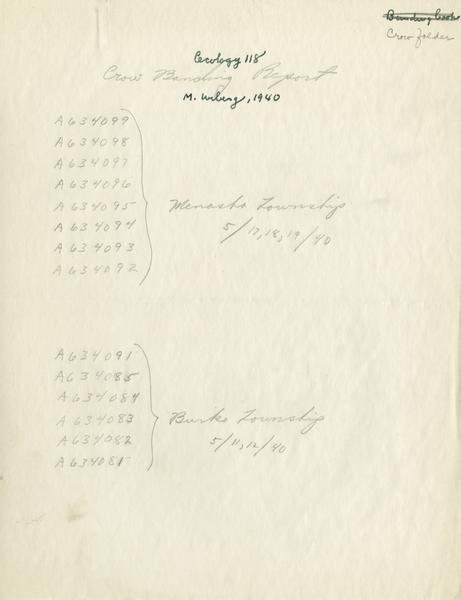 Banding Books
Crow folder
Ecology 118
Crow Banding Report
M. 1940
A634099
A634098
A634097
A634096
A634095
A634094
A634093
A634092
Menasha Township
5/17,18,19/40
A634091
A634085
A634084
A634083
A634082
A634081
Burke Township
5/11,12/40